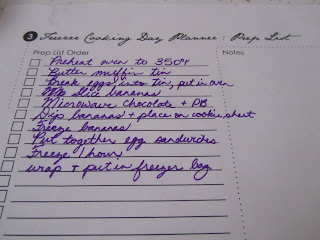 3 Freezer Cooking Day Planner: Prep List
Prep List Order
Notes
Preheat oven to 350°F
Butter muffin tin
Break eggs into tin, put in oven
Slice bananas
Microwave chocolate + PB
Dip bananas + place on cookie sheet
Freeze bananas
Put together egg sandwiches
Freeze 1 hour
wrap + put in freezer bag